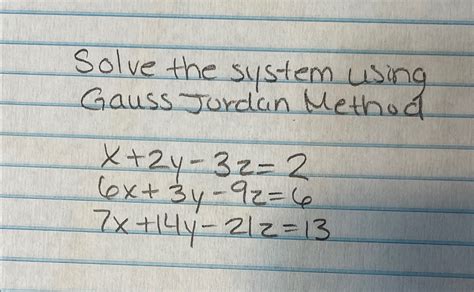 Solve the system using
Gauss Jordan Method
x+2y-3z=2
6x+3y-9z=6
7x+14y-21z=13